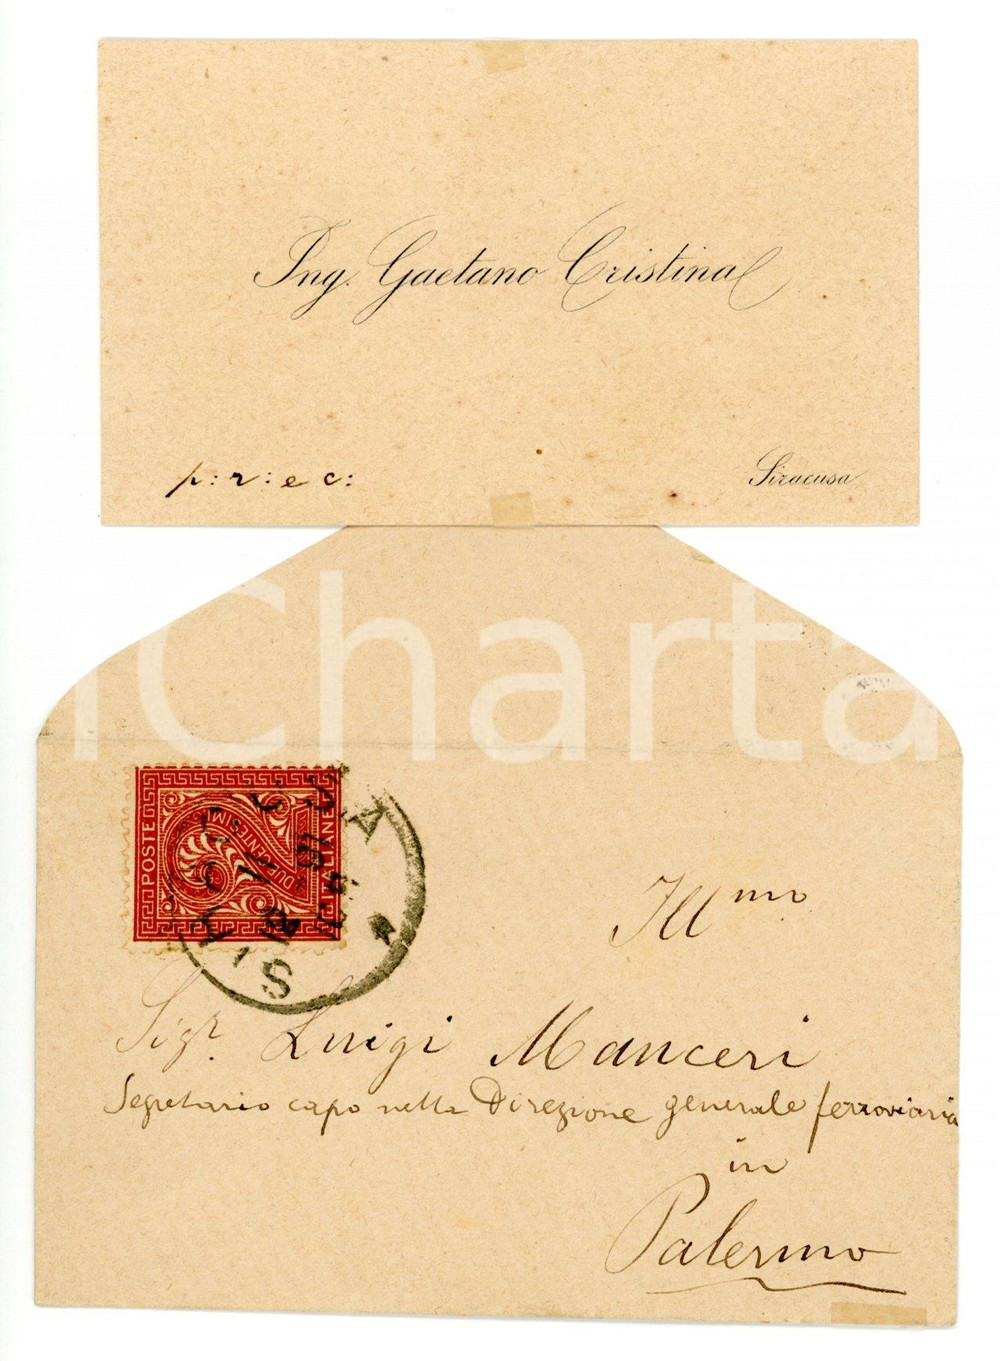 Ing. Gaetano Cristina
p: r: e c:
Siracusa
iCharta
POSTE
DUE CENTESIMI
ITALIANE
Ill mo
Sigr. Luigi Manceri
Segretario capo nella Direzione generale ferroviaria
in
Palermo